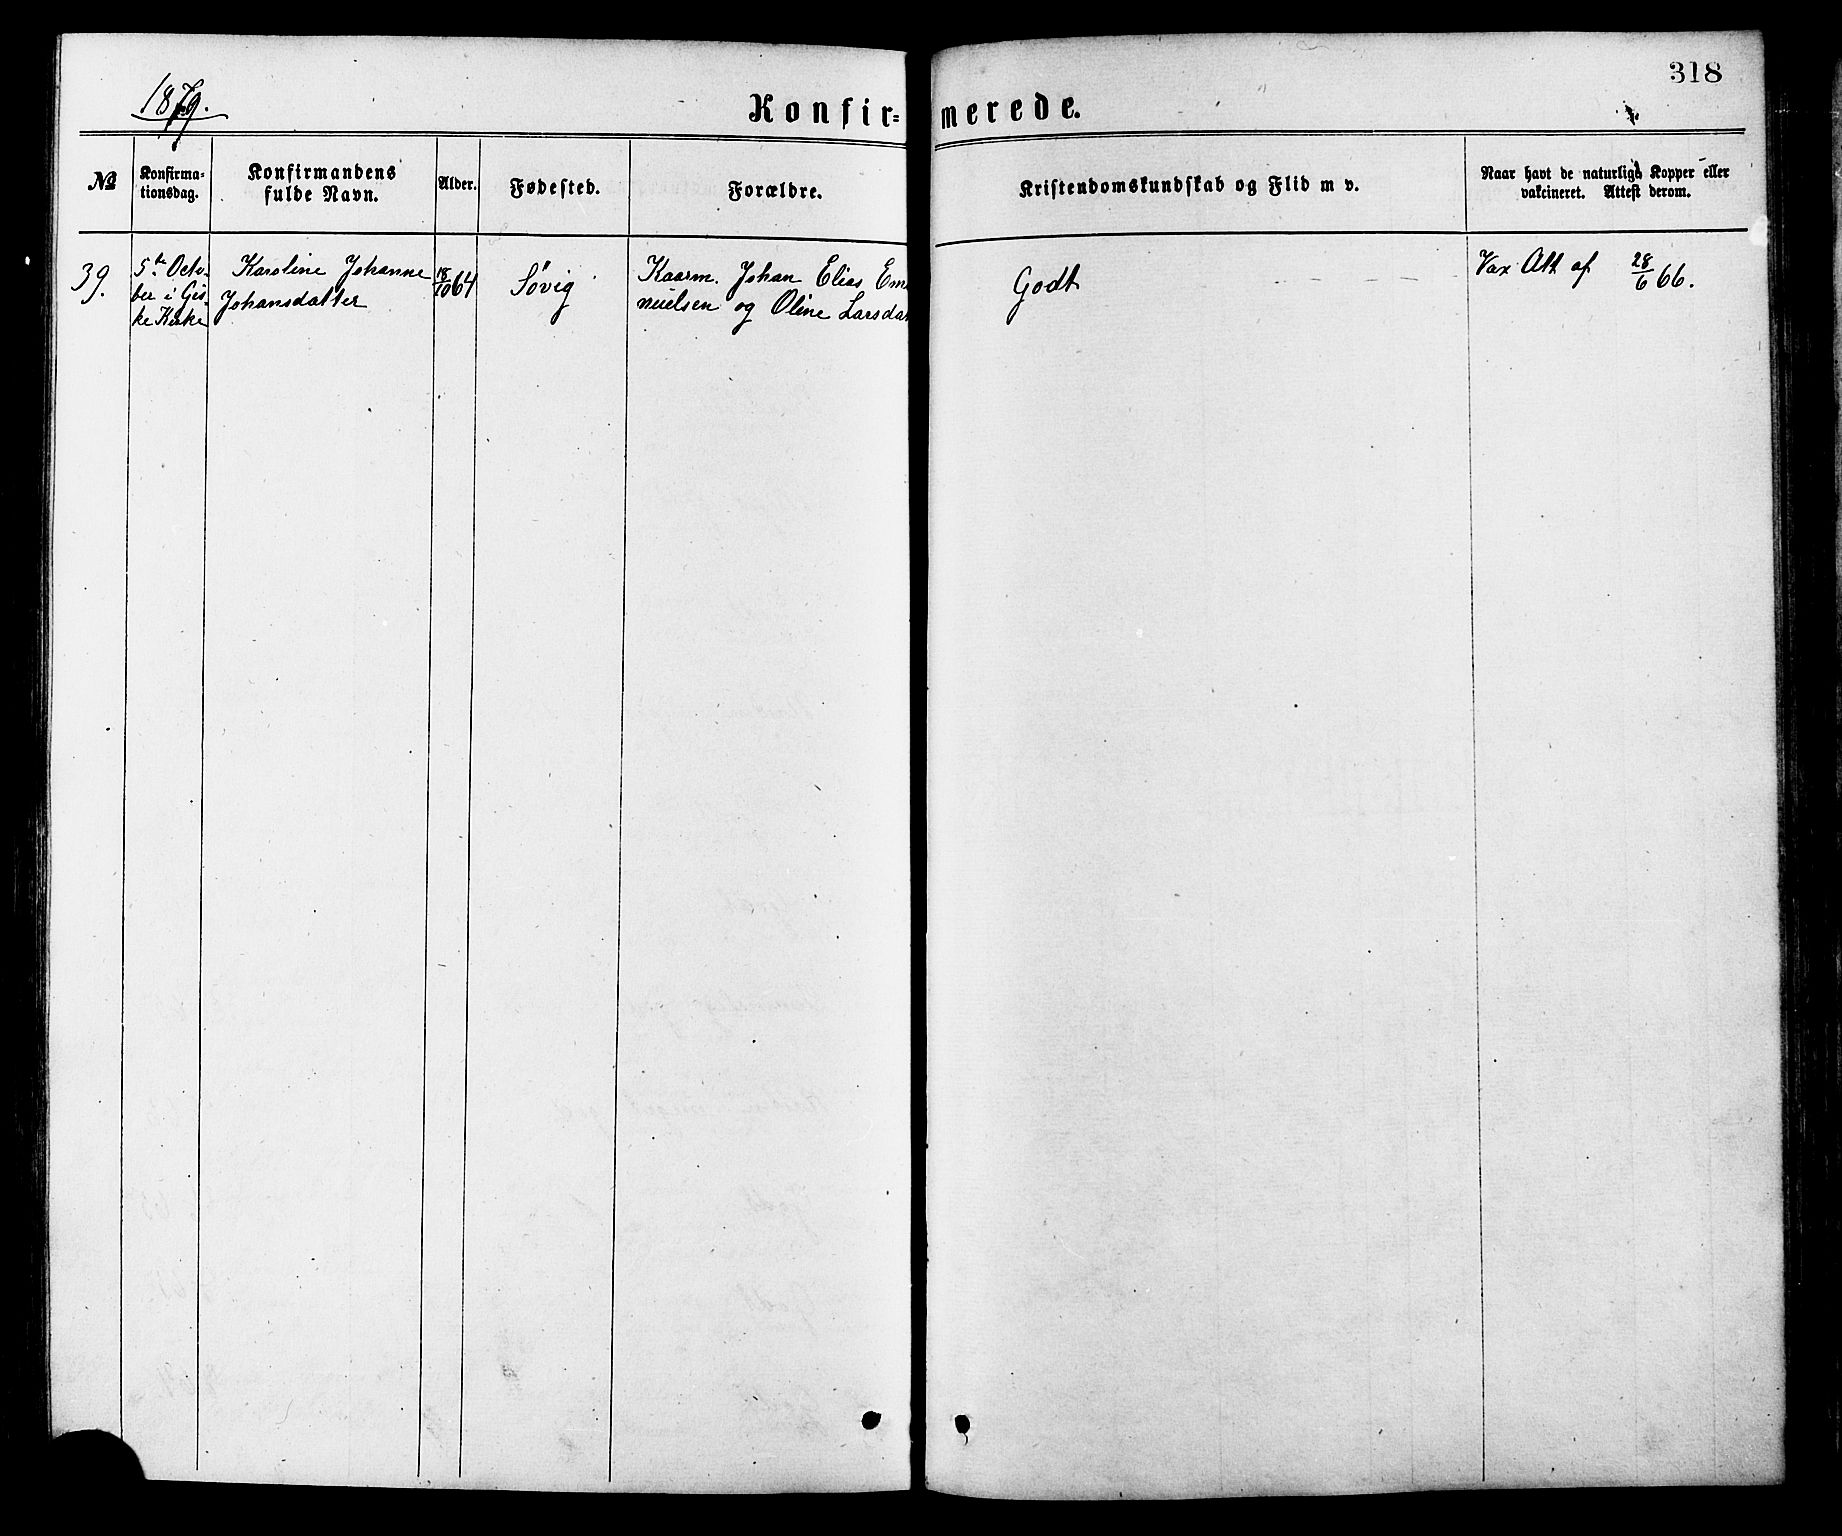 318
1879.
Konfir=
merede.
No
Konfirma-
tionsdag.
Konfirmandens
fulde Navn.
Alder.
Fødested.
Forældre.
Kristendomskundskab og Flid m v.
Naar havt de naturlige Kopper eller
vakcineret. Attest derom.
39.
5te Octo-
ber i Gis-
ke Kirke
Karoline Johanne
Johansdatter
18/10 64
Søvig
Kaarm. Johan Elias Em
nuelsen og Oline Larsdat
Godt
Vax Att af 28/6 66.